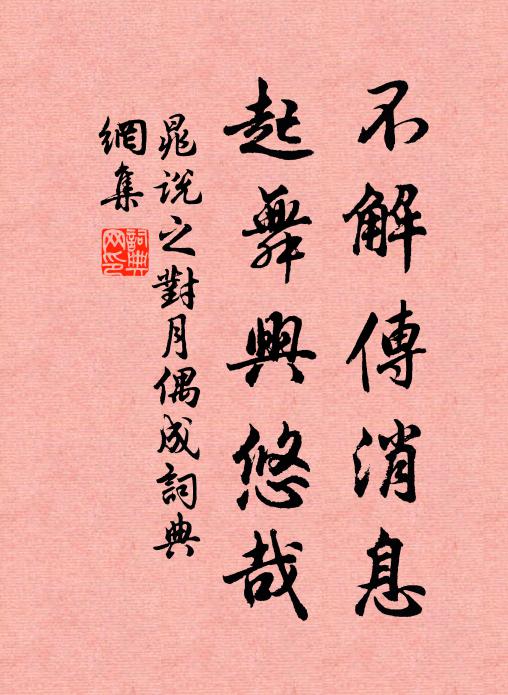 不解傳消息
起舞興悠哉
晁說之對月偶成詞典
網集
詞典網印